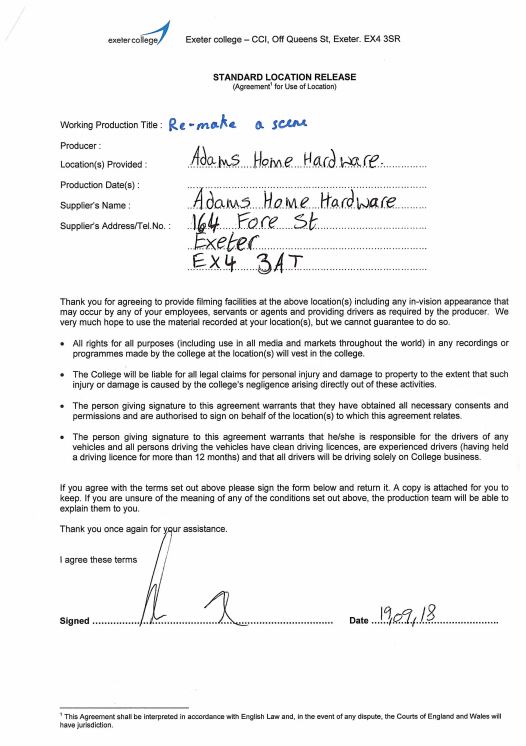 exeter college
Exeter college – CCI, Off Queens St, Exeter. EX4 3SR
STANDARD LOCATION RELEASE
(Agreement¹ for Use of Location)
Working Production Title : Re-make a scene
Producer :
Location(s) Provided : Adams Home Hardware.
Production Date(s) :
Supplier's Name : Adams Home Hardware
Supplier's Address/Tel.No. : 164 Fore St
Exeter
EX4 3AT
Thank you for agreeing to provide filming facilities at the above location(s) including any in-vision appearance that
may occur by any of your employees, servants or agents and providing drivers as required by the producer. We
very much hope to use the material recorded at your location(s), but we cannot guarantee to do so.
• All rights for all purposes (including use in all media and markets throughout the world) in any recordings or
programmes made by the college at the location(s) will vest in the college.
• The College will be liable for all legal claims for personal injury and damage to property to the extent that such
injury or damage is caused by the college's negligence arising directly out of these activities.
• The person giving signature to this agreement warrants that they have obtained all necessary consents and
permissions and are authorised to sign on behalf of the location(s) to which this agreement relates.
• The person giving signature to this agreement warrants that he/she is responsible for the drivers of any
vehicles and all persons driving the vehicles have clean driving licences, are experienced drivers (having held
a driving licence for more than 12 months) and that all drivers will be driving solely on College business.
If you agree with the terms set out above please sign the form below and return it. A copy is attached for you to
keep. If you are unsure of the meaning of any of the conditions set out above, the production team will be able to
explain them to you.
Thank you once again for your assistance.
I agree these terms
Signed Date 19,09,18
¹ This Agreement shall be interpreted in accordance with English Law and, in the event of any dispute, the Courts of England and Wales will
have jurisdiction.